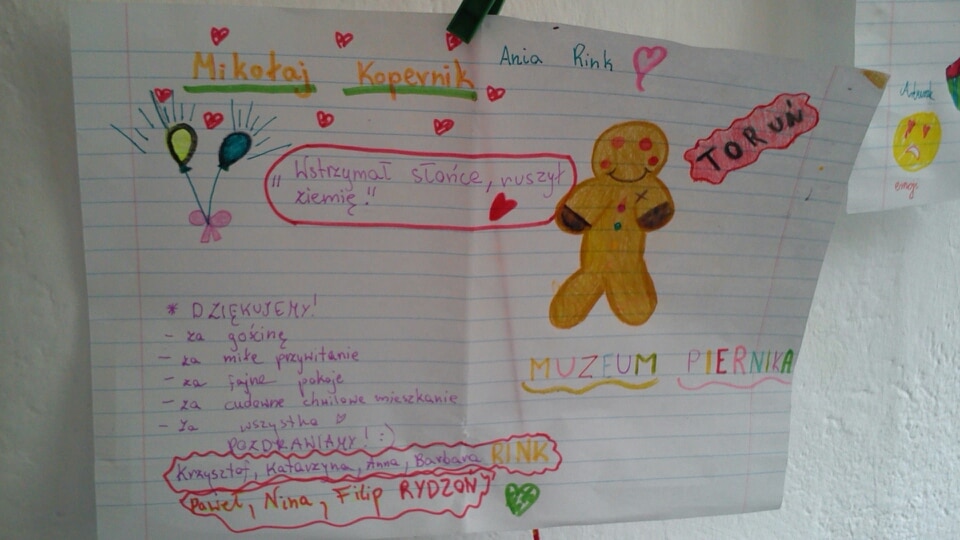 Mikołaj Kopernik
Ania Rink
TORUŃ
„Wstrzymał słońce, ruszył
ziemię!"
* DZIĘKUJEMY!
- za gościnę
- za miłe przywitanie
- za fajne pokoje
- za cudowne chwilowe mieszkanie
- za wszystko
POZDRAWIAMY! :)
Krzysztof, Katarzyna, Anna, Barbara RINK
Paweł, Nina, Filip RYDZOŃ
MUZEUM PIERNIKA